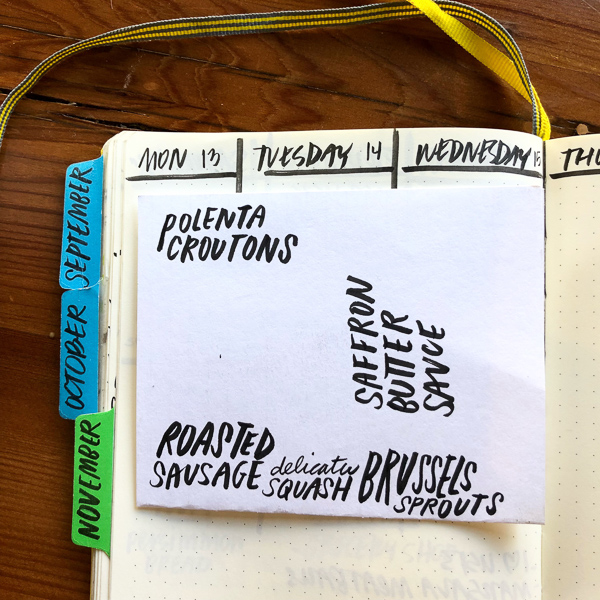 MON 13
TUESDAY 14
WEDNESDAY 15
THU
SEPTEMBER
OCTOBER
NOVEMBER
POLENTA
CROUTONS
SAFFRON
BUTTER
SAUCE
ROASTED
SAUSAGE
delicata
SQUASH
BRUSSELS
SPROUTS